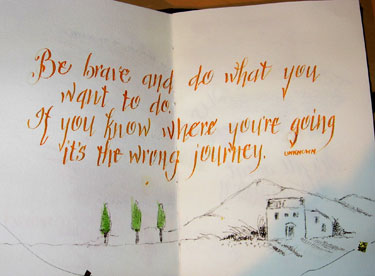 Be brave and do what you
want to do.
If you know where you're going
it's the wrong journey. UNKNOWN